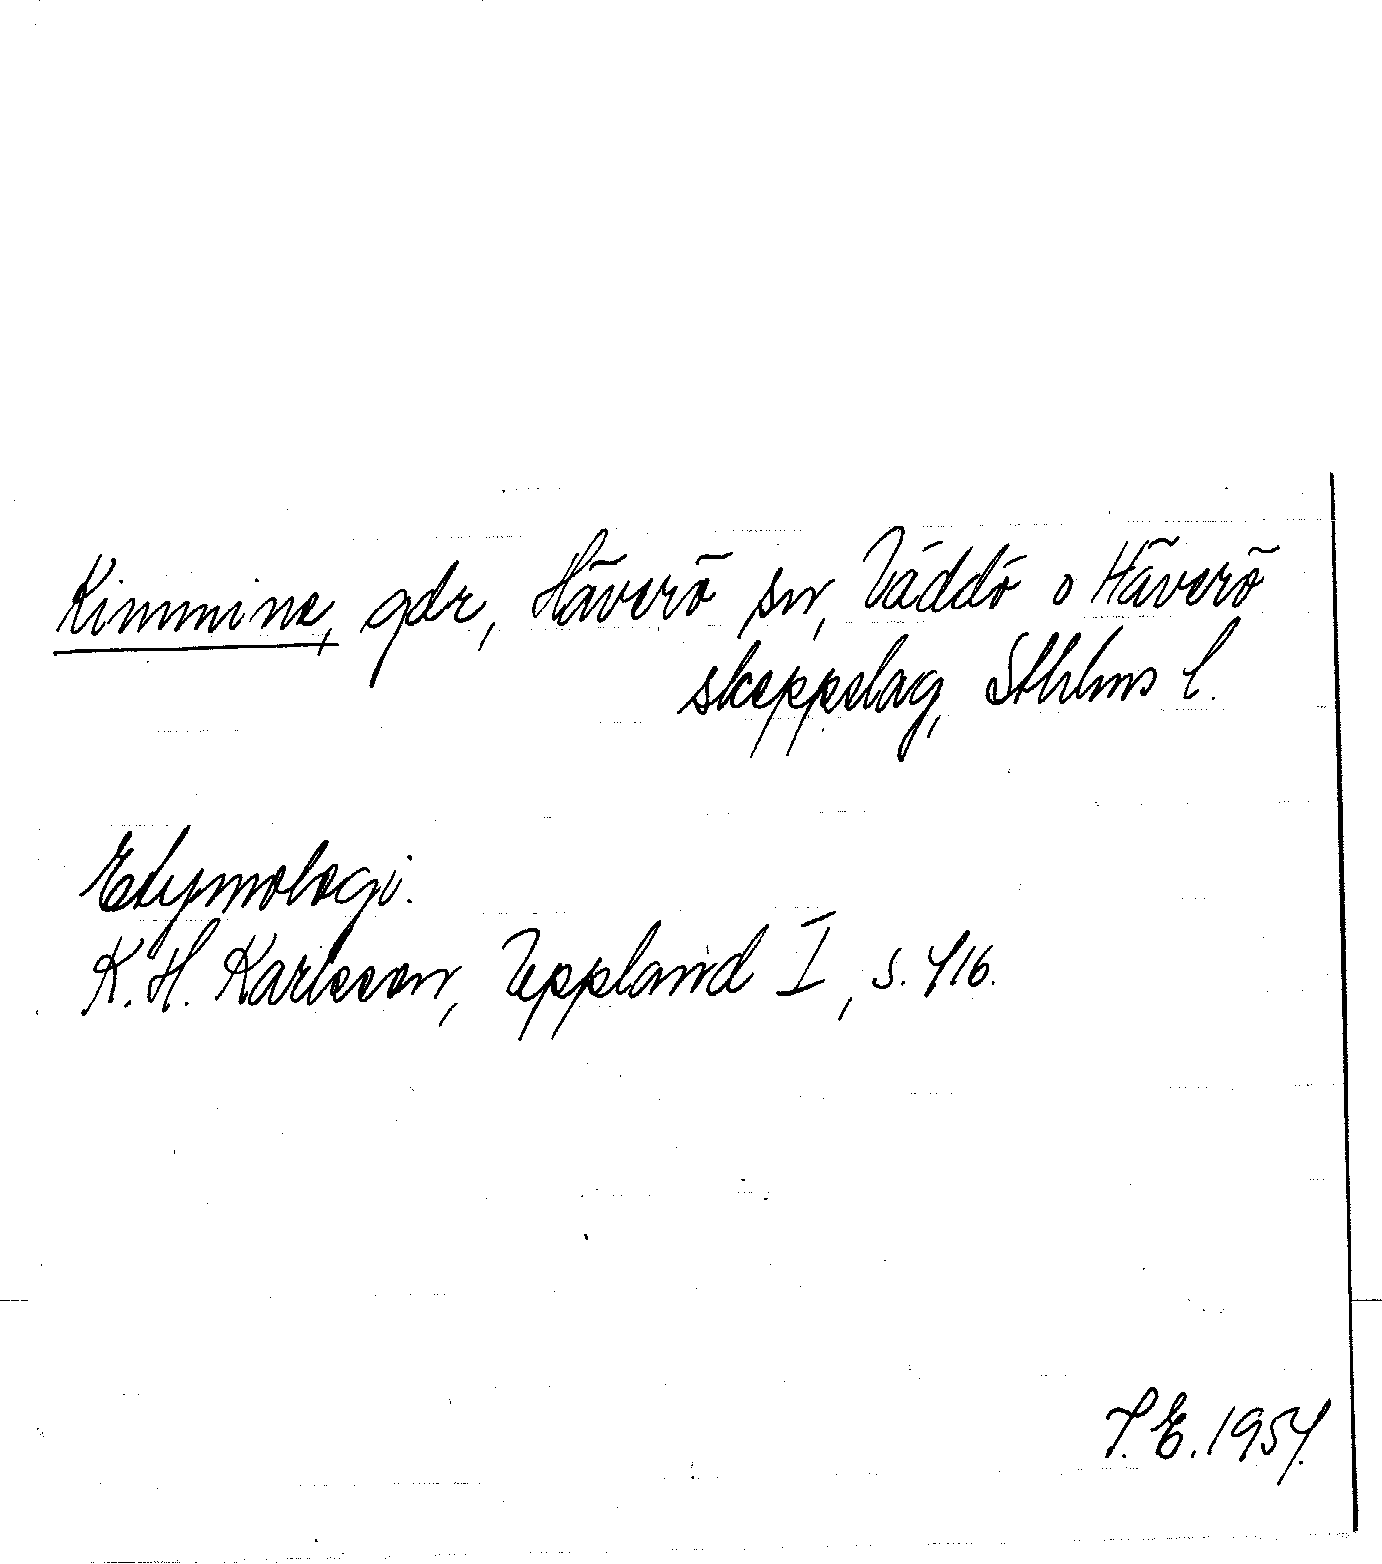 Kimminge, gdr, Häverö sn, Väddö o Häverö
skeppslag, Sthlms l.
Etymologi.
K. H. Karlsson, Uppland I, s. 416.
T. E. 1954.